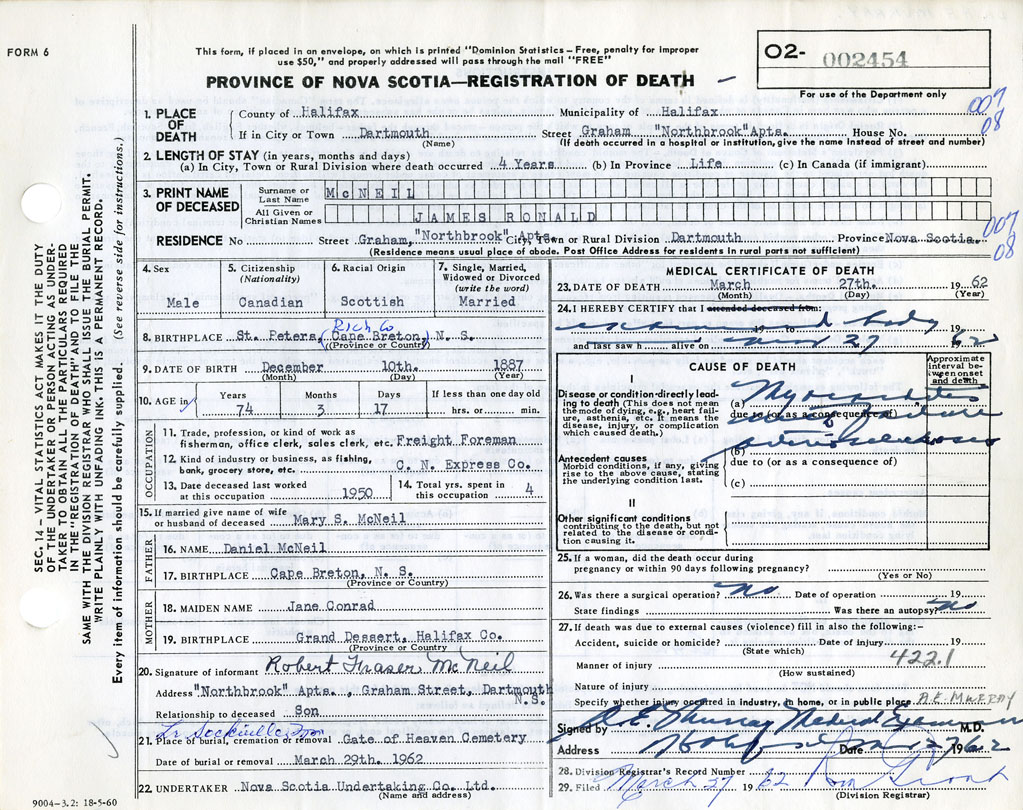 FORM 6
This form, if placed in an envelope, on which is printed "Dominion Statistics – Free, penalty for improper
use $50," and properly addressed will pass through the mail "FREE"
PROVINCE OF NOVA SCOTIA—REGISTRATION OF DEATH
O2- 002454
For use of the Department only
1. PLACE OF DEATH
County of Halifax Municipality of Halifax 007
If in City or Town Dartmouth Street Graham "Northbrook" Apts. House No. 08
(Name) (If death occurred in a hospital or institution, give the name instead of street and number)
2. LENGTH OF STAY (in years, months and days)
(a) In City, Town or Rural Division where death occurred 4 Years (b) In Province Life (c) In Canada (if immigrant)
3. PRINT NAME OF DECEASED
Surname or Last Name McNEIL
All Given or Christian Names JAMES RONALD
RESIDENCE No Street Graham, "Northbrook" Apts. City, Town or Rural Division Dartmouth Province Nova Scotia. 007
(Residence means usual place of abode. Post Office Address for residents in rural parts not sufficient) 08
4. Sex
Male
5. Citizenship (Nationality)
Canadian
6. Racial Origin
Scottish
7. Single, Married, Widowed or Divorced (write the word)
Married
Rich Co
8. BIRTHPLACE St. Peters, Cape Breton, N. S.
(Province or Country)
9. DATE OF BIRTH December 10th. 1887
(Month) (Day) (Year)
10. AGE in
Years 74
Months 3
Days 17
If less than one day old
hrs. or min.
OCCUPATION
11. Trade, profession, or kind of work as
fisherman, office clerk, sales clerk, etc. Freight Foreman
12. Kind of industry or business, as fishing,
bank, grocery store, etc. C. N. Express Co.
13. Date deceased last worked at this occupation 1950
14. Total yrs. spent in this occupation 4
15. If married give name of wife
or husband of deceased Mary S. McNeil
FATHER
16. NAME Daniel McNeil
17. BIRTHPLACE Cape Breton, N. S.
(Province or Country)
MOTHER
18. MAIDEN NAME Jane Conrad
19. BIRTHPLACE Grand Dessert, Halifax Co.
(Province or Country)
20. Signature of informant Robert Fraser McNeil
Address "Northbrook" Apts., Graham Street, Dartmouth
N.S.
Relationship to deceased Son
Lr Sackville
21. Place of burial, cremation or removal Gate of Heaven Cemetery
Date of burial or removal March 29th. 1962
22. UNDERTAKER Nova Scotia Undertaking Co. Ltd.
(Name and address)
9004-3.2: 18-5-60
MEDICAL CERTIFICATE OF DEATH
23. DATE OF DEATH March 27th. 1962
(Month) (Day) (Year)
24. I HEREBY CERTIFY that I attended deceased from:
examined body
19 to 19
and last saw h alive on 27 1962
CAUSE OF DEATH
Approximate interval between onset and death
I
Disease or condition directly leading to death (This does not mean the mode of dying, e.g., heart failure, asthenia, etc. It means the disease, injury, or complication which caused death.)
(a) Myocarditis
due to (or as a consequence of)
Antecedent causes
Morbid conditions, if any, giving rise to the above cause, stating the underlying condition last.
(b) arteriosclerosis
due to (or as a consequence of)
(c)
II
Other significant conditions
contributing to the death, but not related to the disease or condition causing it.
25. If a woman, did the death occur during
pregnancy or within 90 days following pregnancy?
(Yes or No)
26. Was there a surgical operation? No Date of operation 19
State findings Was there an autopsy? No
27. If death was due to external causes (violence) fill in also the following:-
Accident, suicide or homicide? Date of injury 19
(State which)
422.1
Manner of injury
(How sustained)
Nature of injury
Specify whether injury occurred in industry, in home, or in public place A.E. MURRAY
Signed by A. E. Murray Medical Examiner M.D.
Address Halifax Date Mar 27 1962
28. Division Registrar's Record Number
29. Filed March 27 1962
(Division Registrar)
SEC. 14 – VITAL STATISTICS ACT MAKES IT THE DUTY
OF THE UNDERTAKER OR PERSON ACTING AS UNDER-
TAKER TO OBTAIN ALL THE PARTICULARS REQUIRED
IN THE "REGISTRATION OF DEATH" AND TO FILE THE
SAME WITH THE DIVISION REGISTRAR WHO SHALL ISSUE THE BURIAL PERMIT.
WRITE PLAINLY WITH UNFADING INK. THIS IS A PERMANENT RECORD.
Every item of information should be carefully supplied. (See reverse side for instructions.)